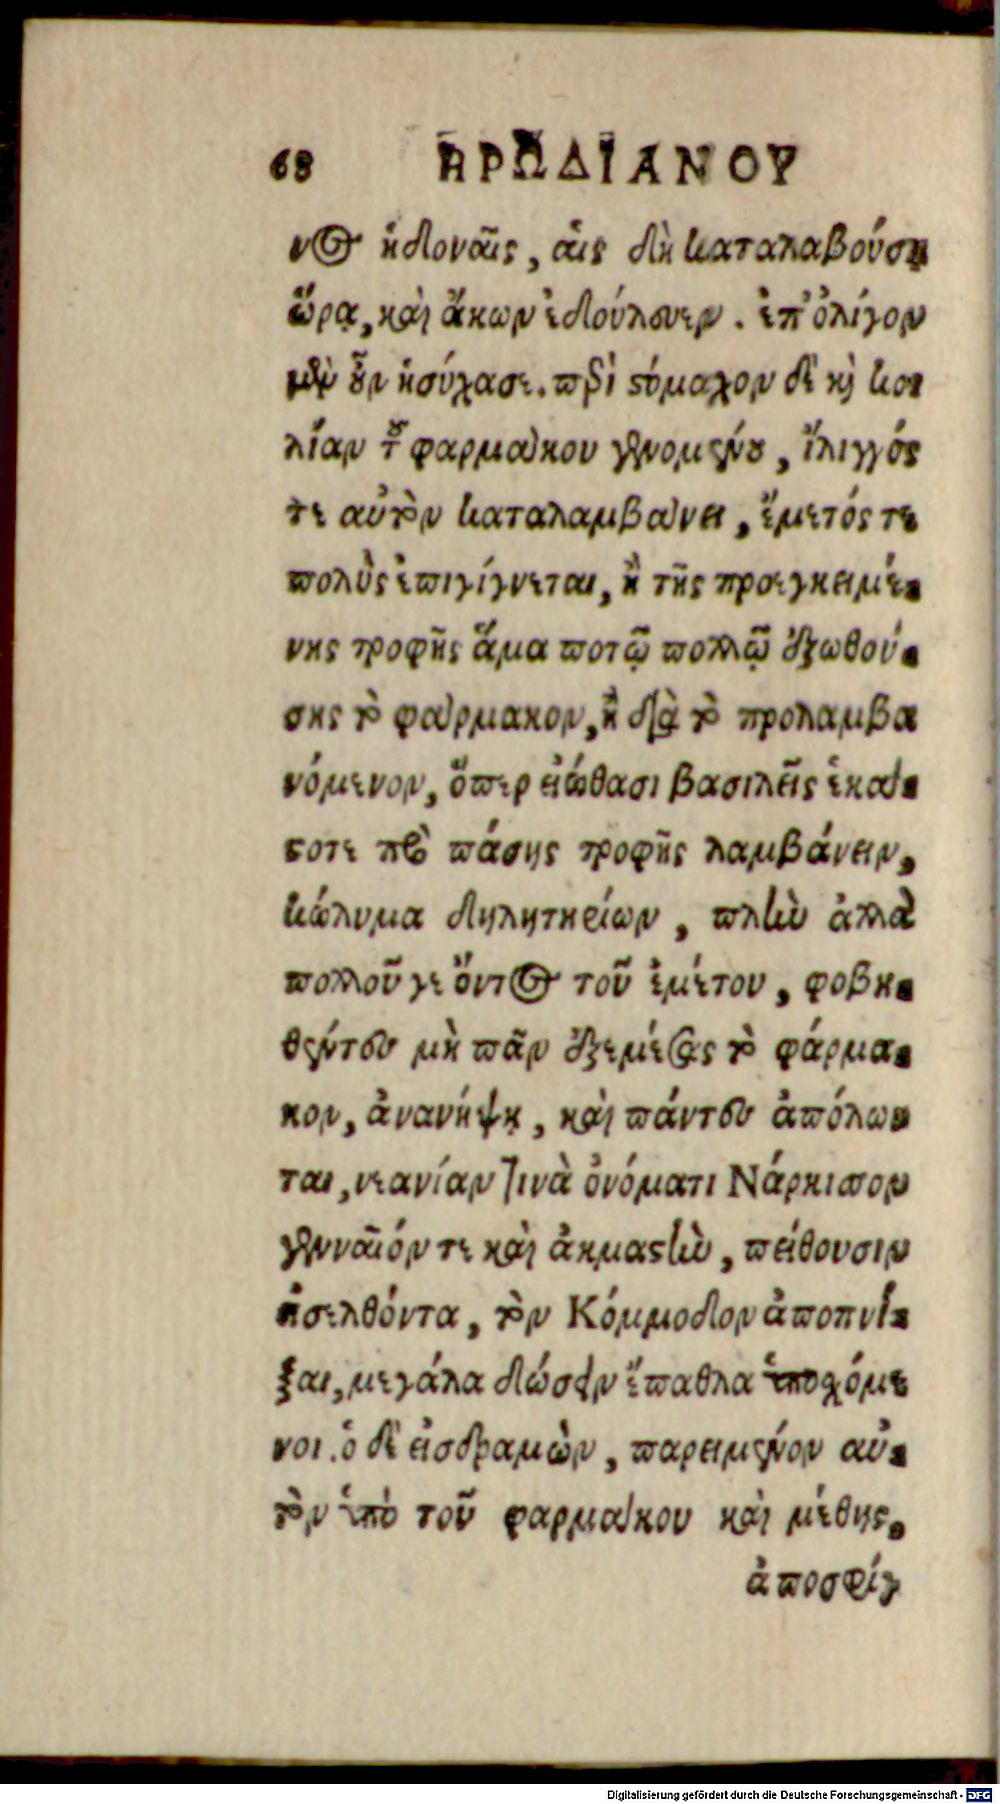 68 ΗΡΩΔΙΑΝΟΥ
νος ἡδοναῖς, αἷς δὴ καταλαβούσῃ
ὥρᾳ, καὶ ἄκων ἐδούλευεν. ἐπ' ὀλίγον
μὲν οὖν ἡσύχασε. περὶ στόμαχον δὲ καὶ κοι
λίαν τοῦ φαρμάκου γενομένου, ἴλιγγός
τε αὐτὸν καταλαμβάνει, ἔμετός τε
πολὺς ἐπιγίγνεται, ἢ τῆς προεγκειμέ-
νης τροφῆς ἅμα ποτῷ πολλῷ ἐξωθού-
σης τὸ φάρμακον, ἢ διὰ τὸ προλαμβα
νόμενον, ὅπερ εἰώθασι βασιλεῖς ἑκά-
στοτε πρὸ πάσης τροφῆς λαμβάνειν,
κώλυμα δηλητηρίων, πλὴν ἀλλὰ
πολλοῦ γε ὄντος τοῦ ἐμέτου, φοβη-
θέντες μὴ πᾶν ἐξεμέσας τὸ φάρμα-
κον, ἀνανήψῃ, καὶ πάντες ἀπόλων
ται, νεανίαν τινὰ ὀνόματι Νάρκισσον
γενναῖόν τε καὶ ἀκμαστὴν, πείθουσιν
εἰσελθόντα, τὸν Κόμμοδον ἀποπνί-
ξαι, μεγάλα δώσειν ἔπαθλα ὑποσχόμε
νοι. ὁ δὲ εἰσδραμὼν, παρειμένον αὐ-
τὸν ὑπὸ τοῦ φαρμάκου καὶ μέθης.
ἀποσφίγ
Digitalisierung gefördert durch die Deutsche Forschungsgemeinschaft - DFG